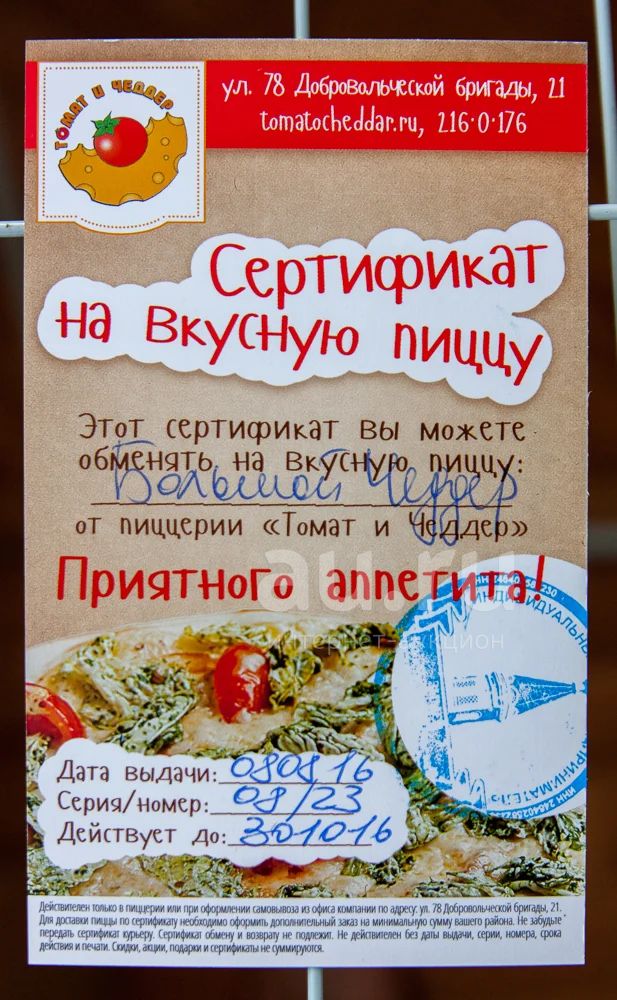 ТОМАТ И ЧЕДДЕР
ул. 78 Добровольческой бригады, 21
tomatocheddar.ru, 216-0-176
Сертификат
на вкусную пиццу
Этот сертификат вы можете
обменять на вкусную пиццу:
Большой Чеддер
от пиццерии «Томат и Чеддер»
Приятного аппетита!
au.ru
интернет-аукцион
ИНДИВИДУАЛЬНЫ
Дата выдачи: 080816
Серия/номер: 08/23
Действует до: 301016
Действителен только в пиццерии или при оформлении самовывоза из офиса компании по адресу: ул. 78 Добровольческой бригады, 21.
Для доставки пиццы по сертификату необходимо оформить дополнительный заказ на минимальную сумму вашего района. Не забудьте
передать сертификат курьеру. Сертификат обмену и возврату не подлежит. Не действителен без даты выдачи, серии, номера, срока
действия и печати. Скидки, акции, подарки и сертификаты не суммируются.